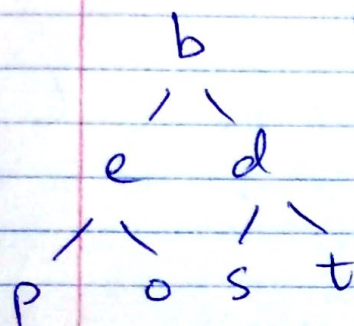 b
e d
p o s t